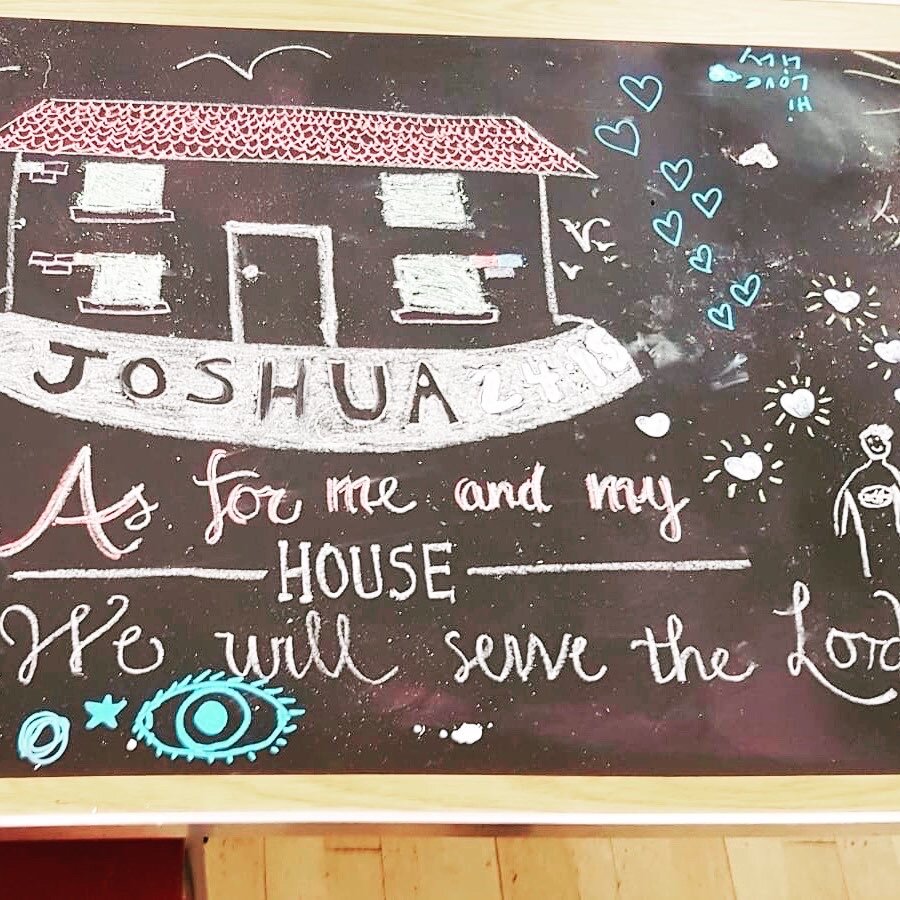 Hi
Love
JOSHUA 24:15
As for me and my
HOUSE
We will serve the Lord